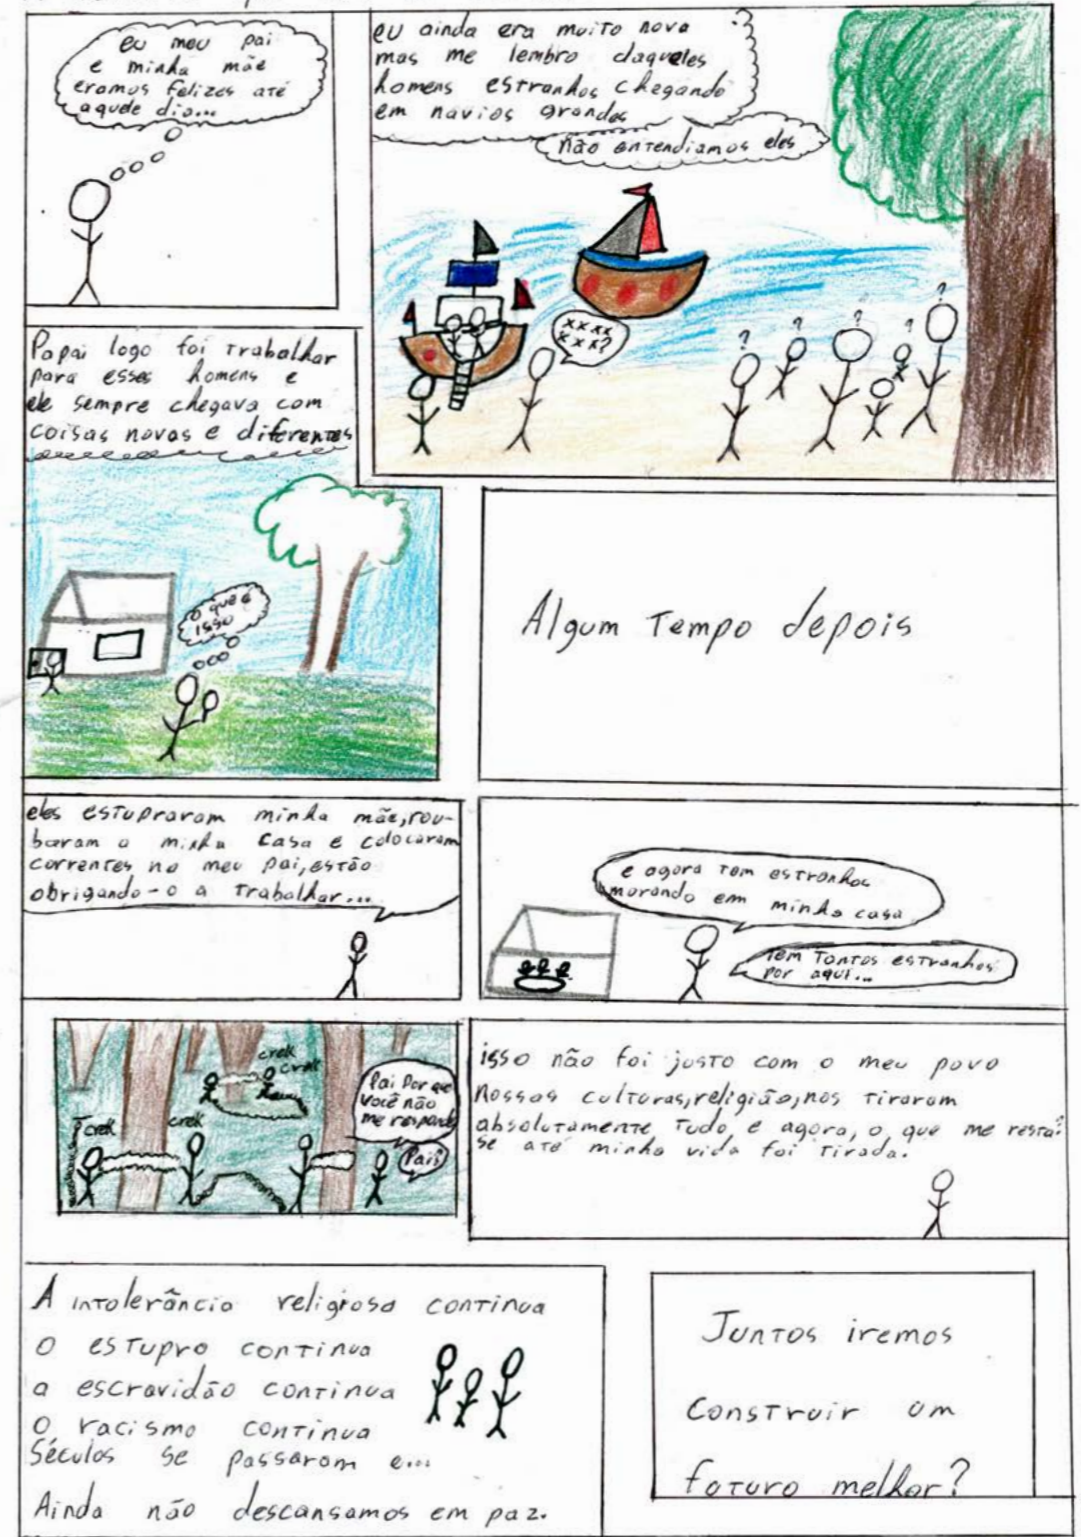 eu meu pai
e minha mãe
eramos felizes até
aquele dia...
eu ainda era muito nova
mas me lembro daqueles
homens estranhos chegando
em navios grandes
não entendiamos eles
xxxx
xxx?
?
?
?
?
?
Papai logo foi trabalhar
para esses homens e
ele sempre chegava com
coisas novas e diferentes
o que é
isso
Algum Tempo depois
eles estupraram minha mãe, rou-
baram a minha casa e colocaram
correntes no meu pai, estão
obrigando-o a trabalhar...
e agora tem estranhos
morando em minha casa
tem tantos estranhos
por aqui...
crek
crek
crek
crek
Pai Por que
você não
me responde
Pai?
isso não foi justo com o meu povo
Nossas culturas, religião, nos tiraram
absolutamente tudo e agora, o que me resta?
se até minha vida foi tirada.
A intolerância religiosa continua
o estupro continua
a escravidão continua
o racismo continua
Séculos se passaram e...
Ainda não descansamos em paz.
Juntos iremos
construir um
futuro melhor?